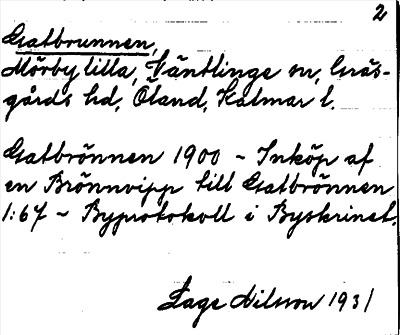 2
Gatbrunnen,
Mörby lilla, Ventlinge sn, Gräs-
gårds hd, Öland, Kalmar l.
Gatbrönnen 1900 - Inköp af
en Brönnvipp till Gatbrönnen
1:67 - Byprotokoll i Byskrinet.
Tage Nilsson 1931